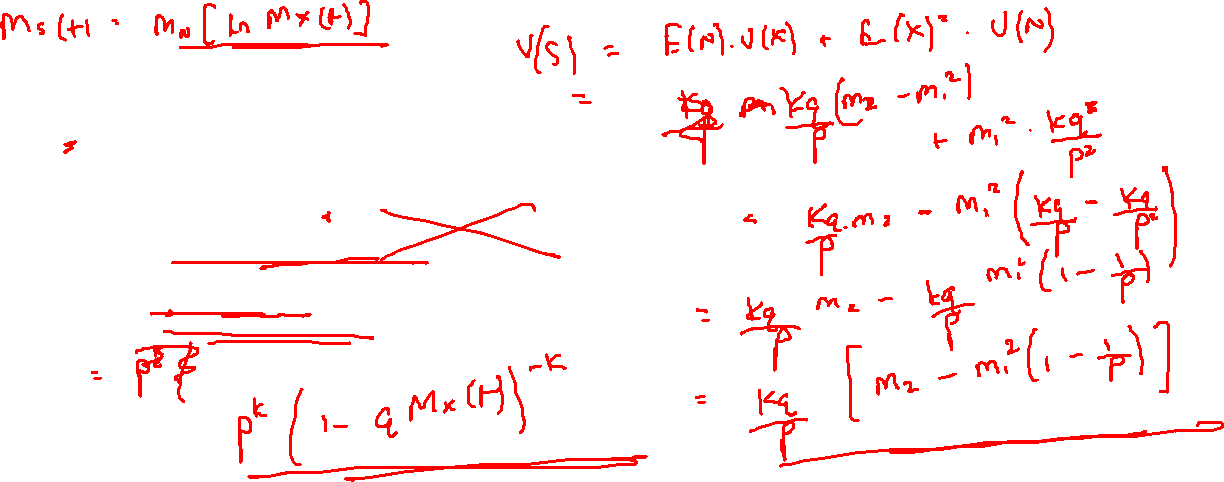 Ms(t) = M_N[ln Mx(t)]
=
= p^k (1 - q Mx(t))^-k
V(S) = E(N).V(X) + E(X)² . V(N)
= kq/p (m₂ - m₁²) + m₁² . kq/p²
= kq/p . m₂ - m₁² (kq/p - kq/p²)
= kq/p m₂ - kq/p m₁² (1 - 1/p)
= kq/p [m₂ - m₁² (1 - 1/p)]